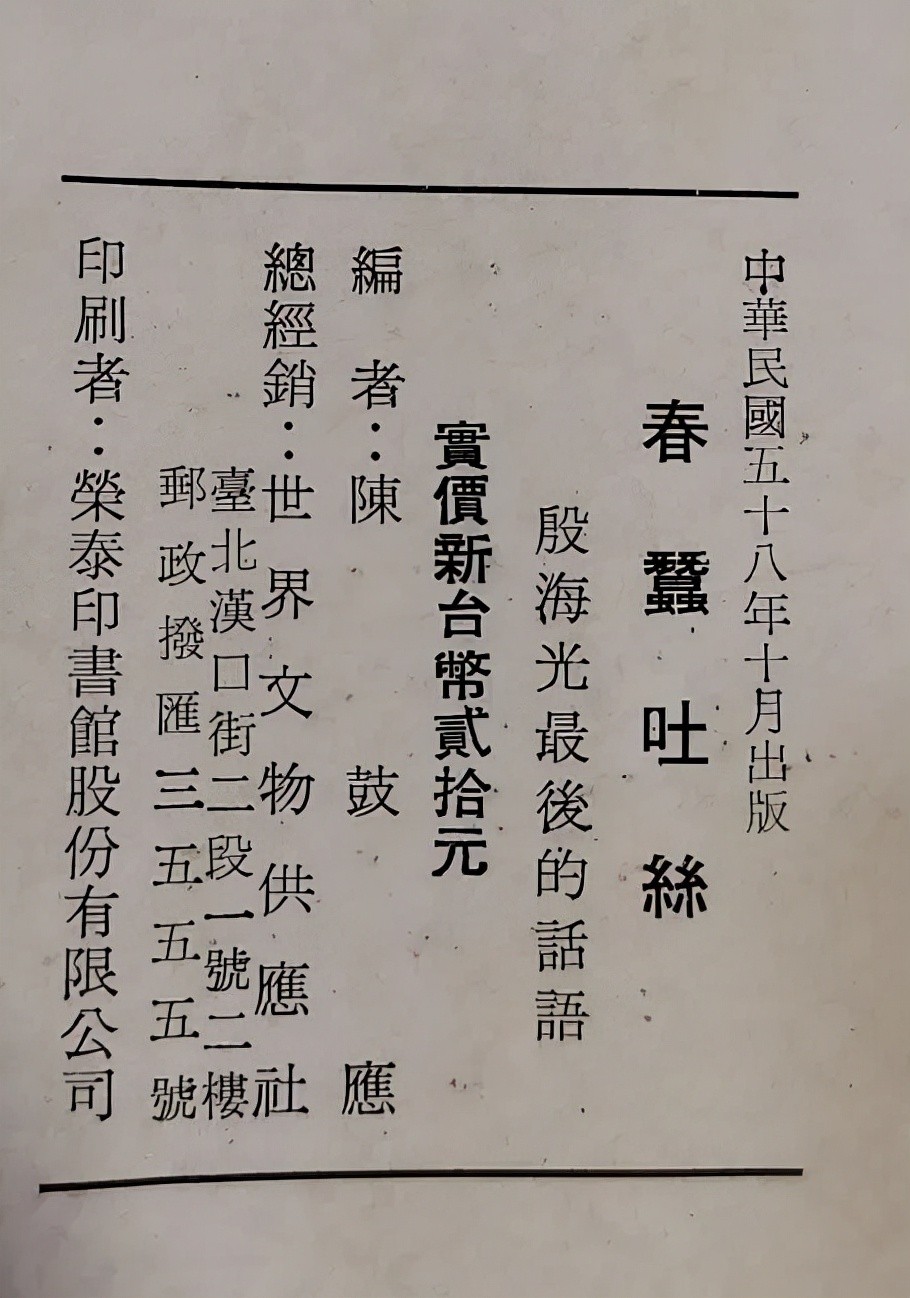 中華民國五十八年十月出版
春蠶吐絲
殷海光最後的話語
實價新台幣貳拾元
編者：陳鼓應
總經銷：世界文物供應社
臺北漢口街二段一號二樓
郵政撥匯三五五五號
印刷者：榮泰印書館股份有限公司